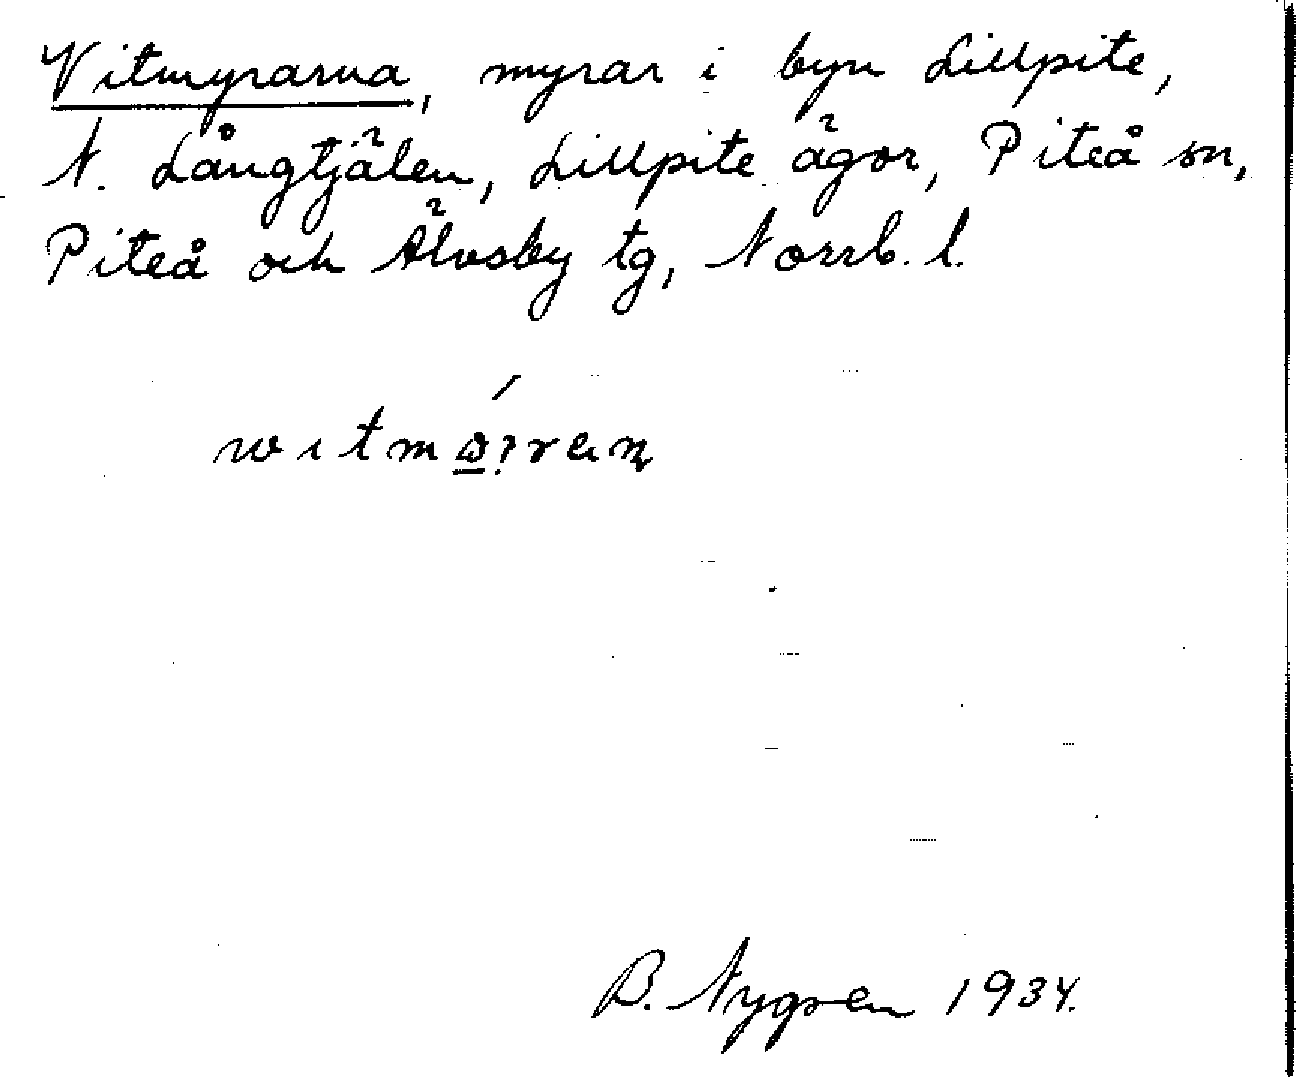 Vitmyrarna, myrar i byn Lillpite,
N. Långtjälen, Lillpite ägor, Piteå sn,
Piteå och Älvsby tg, Norrb. l.
B. Nygren 1934.